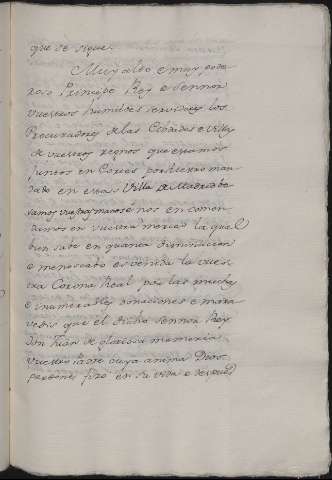 que se sigue.
Muy alto e muy pode
roso Principe Rey e Sennor
vuestros humildes servidores los
Procuradores de las Cibdades e villas
de vuestros regnos que estamos
juntos en Cortes por vuestro man
dado en esta Villa de Madrid be
samos vuestras manos e nos en comen
damos en vuestra merced la qual
bien sabe en quanta diminucion
e menoscabo es venida la vues
tra Corona Real por las muchas
e inumerables donaciones e mara
vedis que el dicho sennor Rey
don Juan de gloriosa memoria
vuestro Padre cuya anima Dios
perdone fizo en su vida e despues